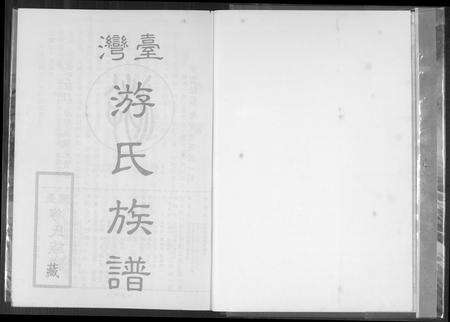 臺灣
游氏族譜
藏